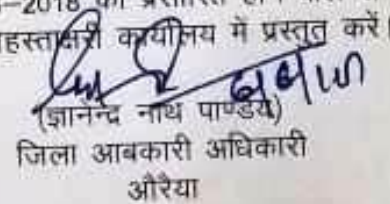 -2018 को प्रसारित
हस्ताक्षरी कार्यालय में प्रस्तुत करें।
(ज्ञानेन्द्र नाथ पाण्डेय)
जिला आबकारी अधिकारी
औरैया